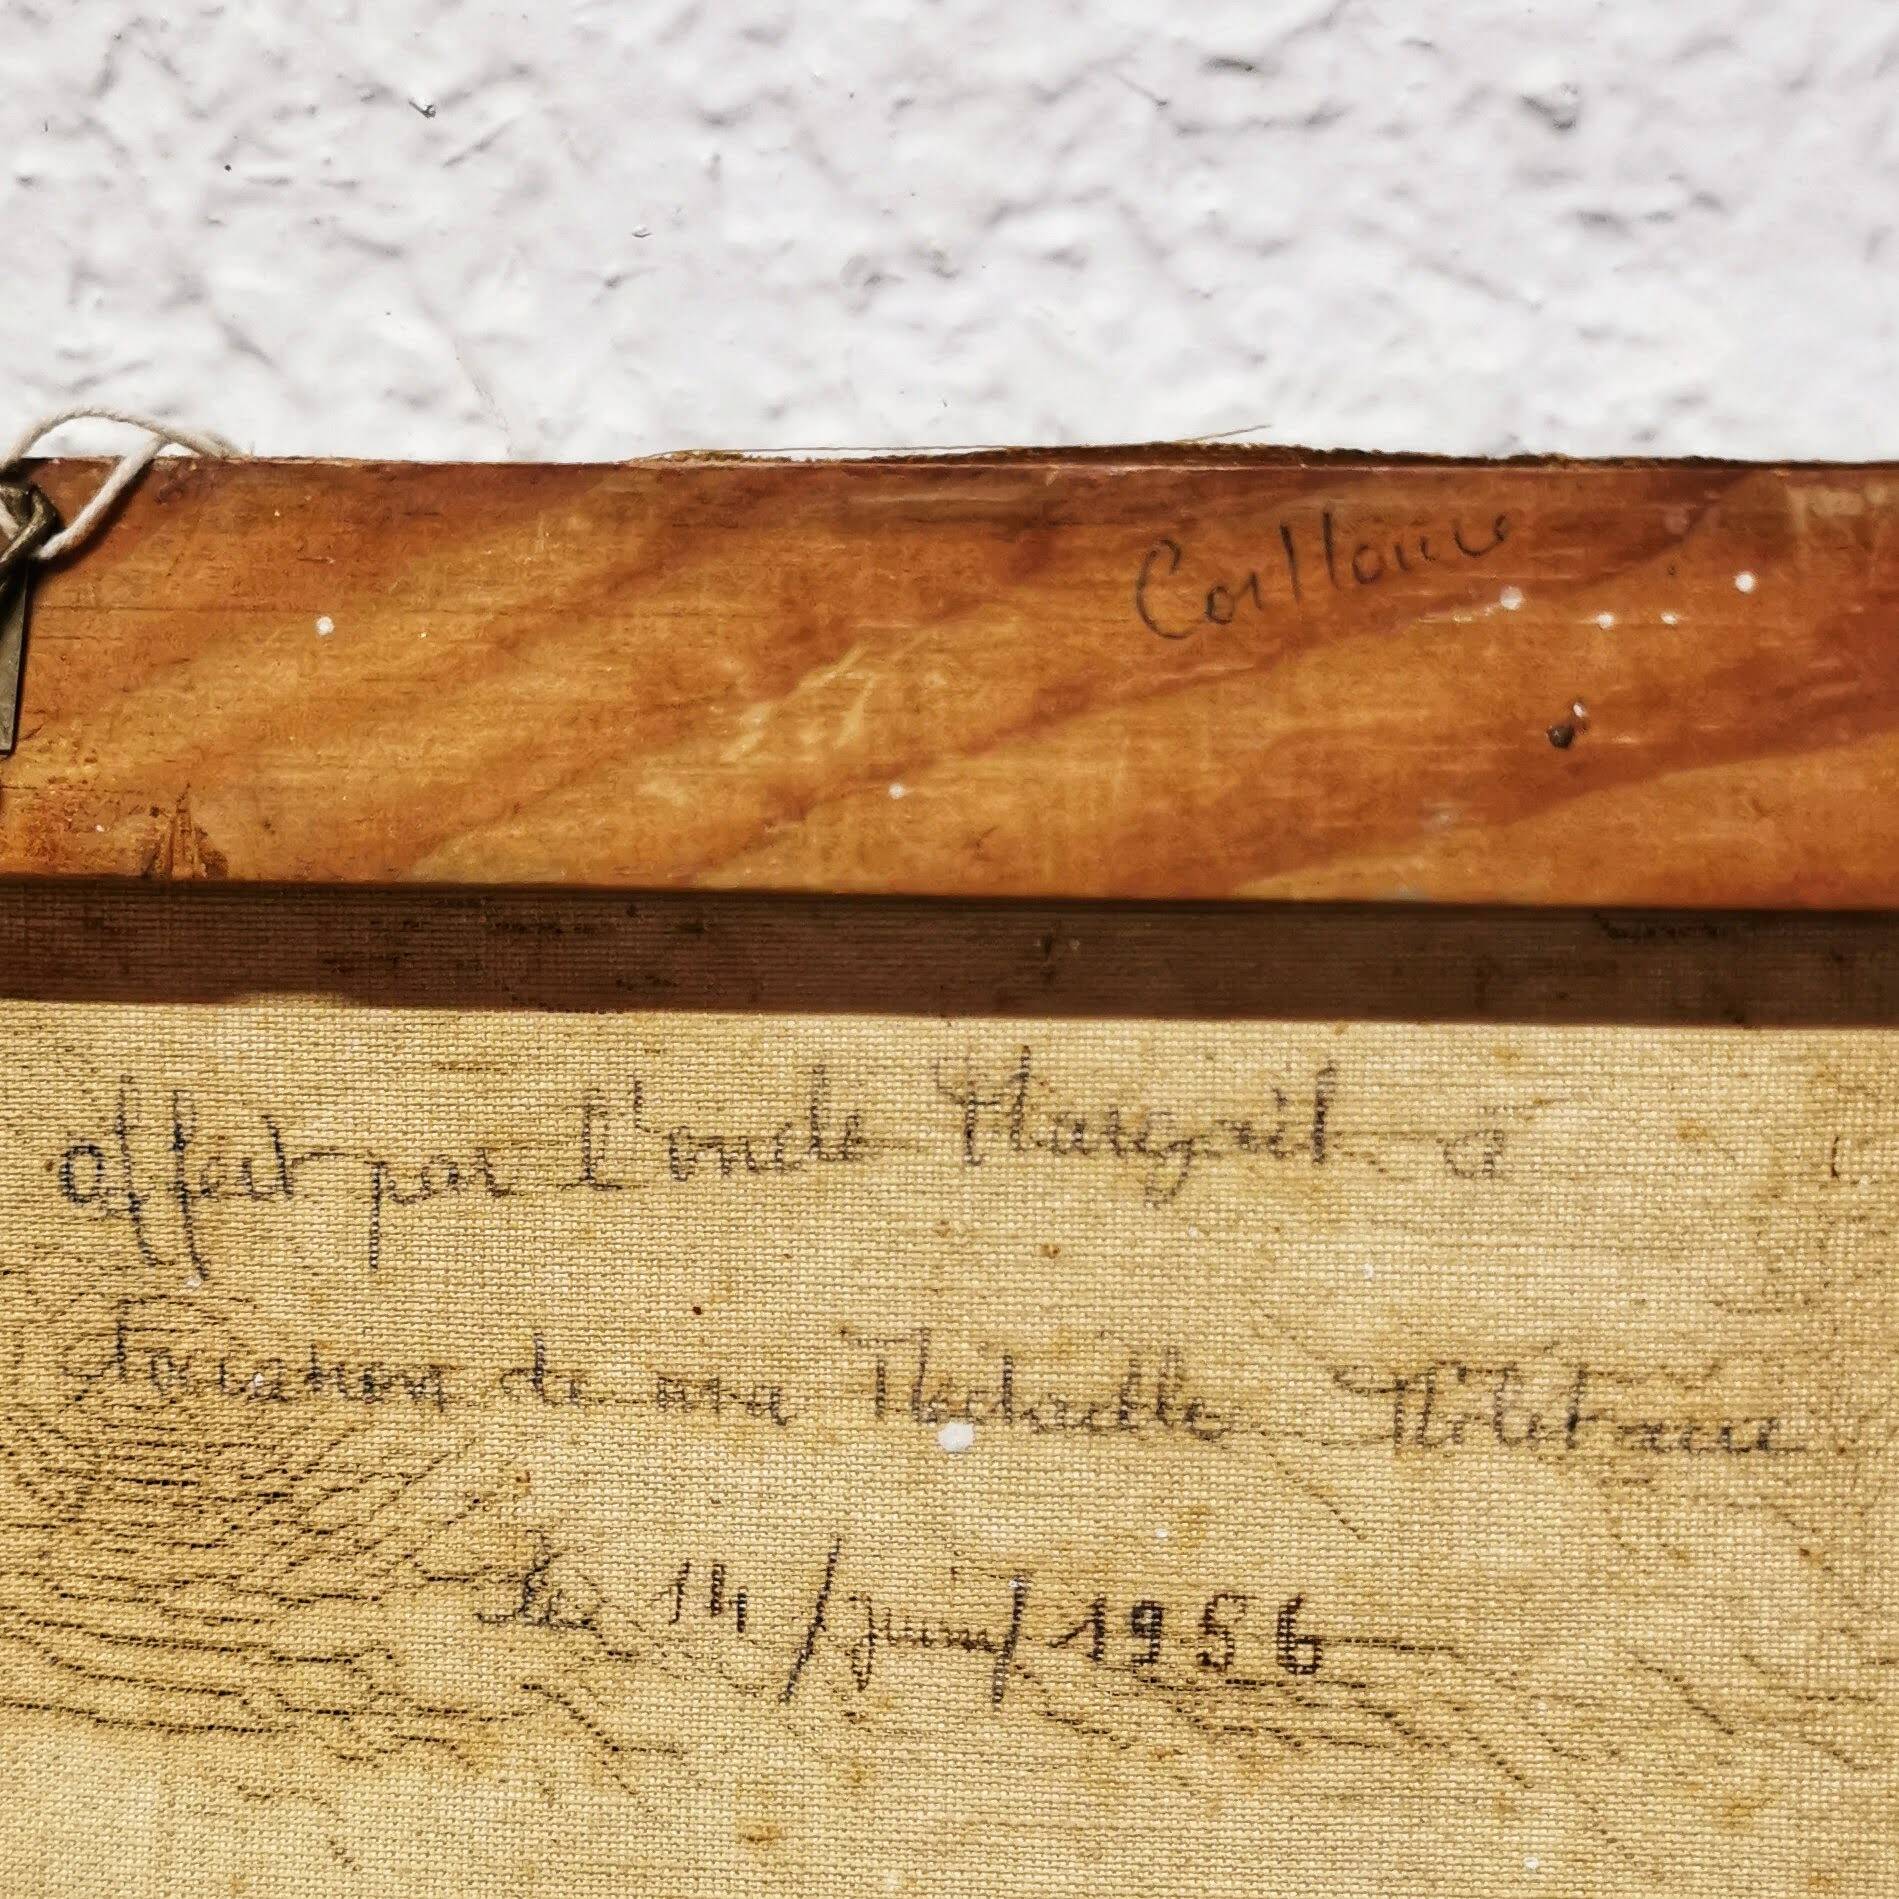 offert par l'oncle à
l'occasion de ma Médaille Militaire
le 14/juin/1956